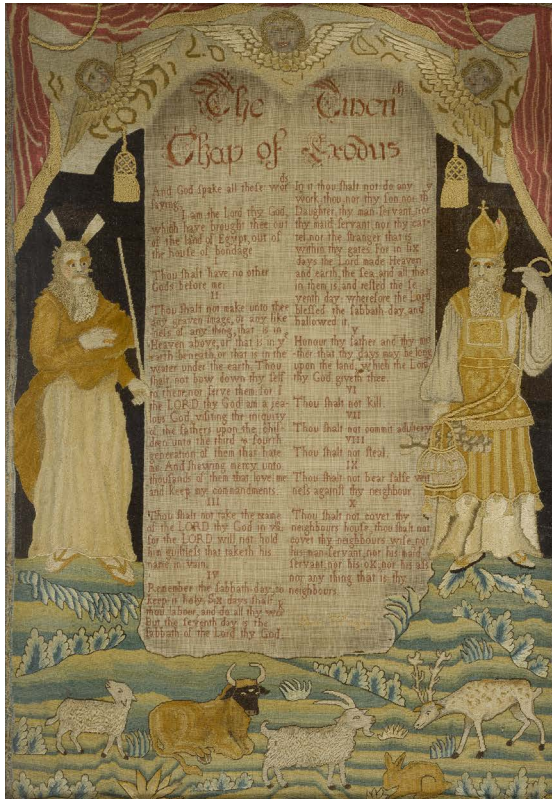 The Twen^th
Chap of Exodus
And God spake all these wor^ds
saying,
I am the Lord thy God,
which have brought thee out
of the land of Egypt, out of
the house of bondage
Thou ſhalt have no other
Gods before me:
II
Thou ſhalt not make unto thee
any graven image, or any like
neſs of any thing, that is in
Heaven above, or that is in y
earth beneath, or that is in the
water under the earth. Thou
ſhalt not bow down thy ſelf
to them: nor ſerve them: for I
the LORD thy God am a jea-
lous God, viſiting the iniquity
of the fathers upon the chil-
dern unto the third & fourth
generation of them that hate
me. And ſhewing mercy unto
thouſands of them that love me
and keep my commandments.
III
Thou ſhalt not take the name
of the LORD thy God in va:
for the LORD will not hold
him guiltleſs that taketh his
name in vain.
IV
Remember the ſabbath day, to
keep it holy, Six days ſhalt
thou labour, and do all thy wo
But the ſeventh day is the
ſabbath of the Lord thy God.
In it thou ſhalt not do any y
work, thou, nor thy ſon, nor th
Daughter, thy man-ſervant, nor
thy maid ſervant, nor thy cat-
tel, nor the ſtranger that is
within thy gates. For in SIX
days the Lord made Heaven
and earth, the ſea, and all that
in them is, and reſted the ſe
venth day: wherefore the Lord
bleſſed the ſabbath day, and
hallowed it.
V
Honour thy father and thy mo
ther that thy days may be long
upon the land, which the Lord
thy God giveth thee.
VI
Thou ſhalt not kill.
VII
Thou ſhalt not commit adultery
VIII
Thou ſhalt not ſteal.
IX
Thou ſhalt not bear falſe wit
neſs againſt thy neighbour.
X
Thou ſhalt not covet thy
neighbours houſe, thou ſhalt not
covet thy neighbours wife, nor
his man-ſervant, nor his maid
ſervant, nor his ox, nor his aſs
nor any thing that is thy
neighbours